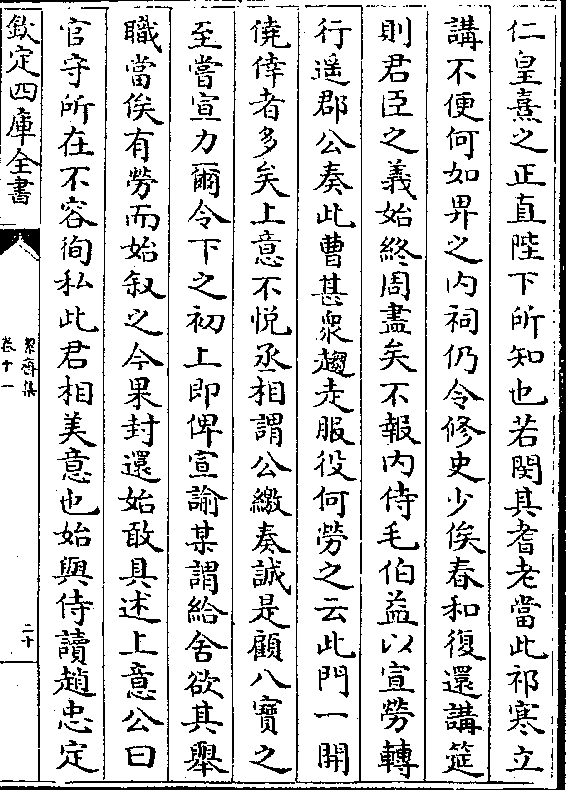 仁皇熹之正直陛下所知也若閔其耆老當此祁寒立
講不便何如畀之内祠仍令修史少俟春和復還講筵
則君臣之義始終周盡矣不報内侍毛伯益以宣勞轉
行遥郡公奏此曹甚衆趨走服役何勞之云此門一開
僥倖者多矣上意不悦丞相謂公繳奏誠是顧八寳之
至嘗宣力爾令下之初上即俾宣諭某謂給舍欲其舉
職當俟有勞而始叙之今果封還始敢具述上意公曰
官守所在不容徇私此君相美意也始與侍讀趙忠定
欽定四庫全書
絜齋集
卷十一
二十